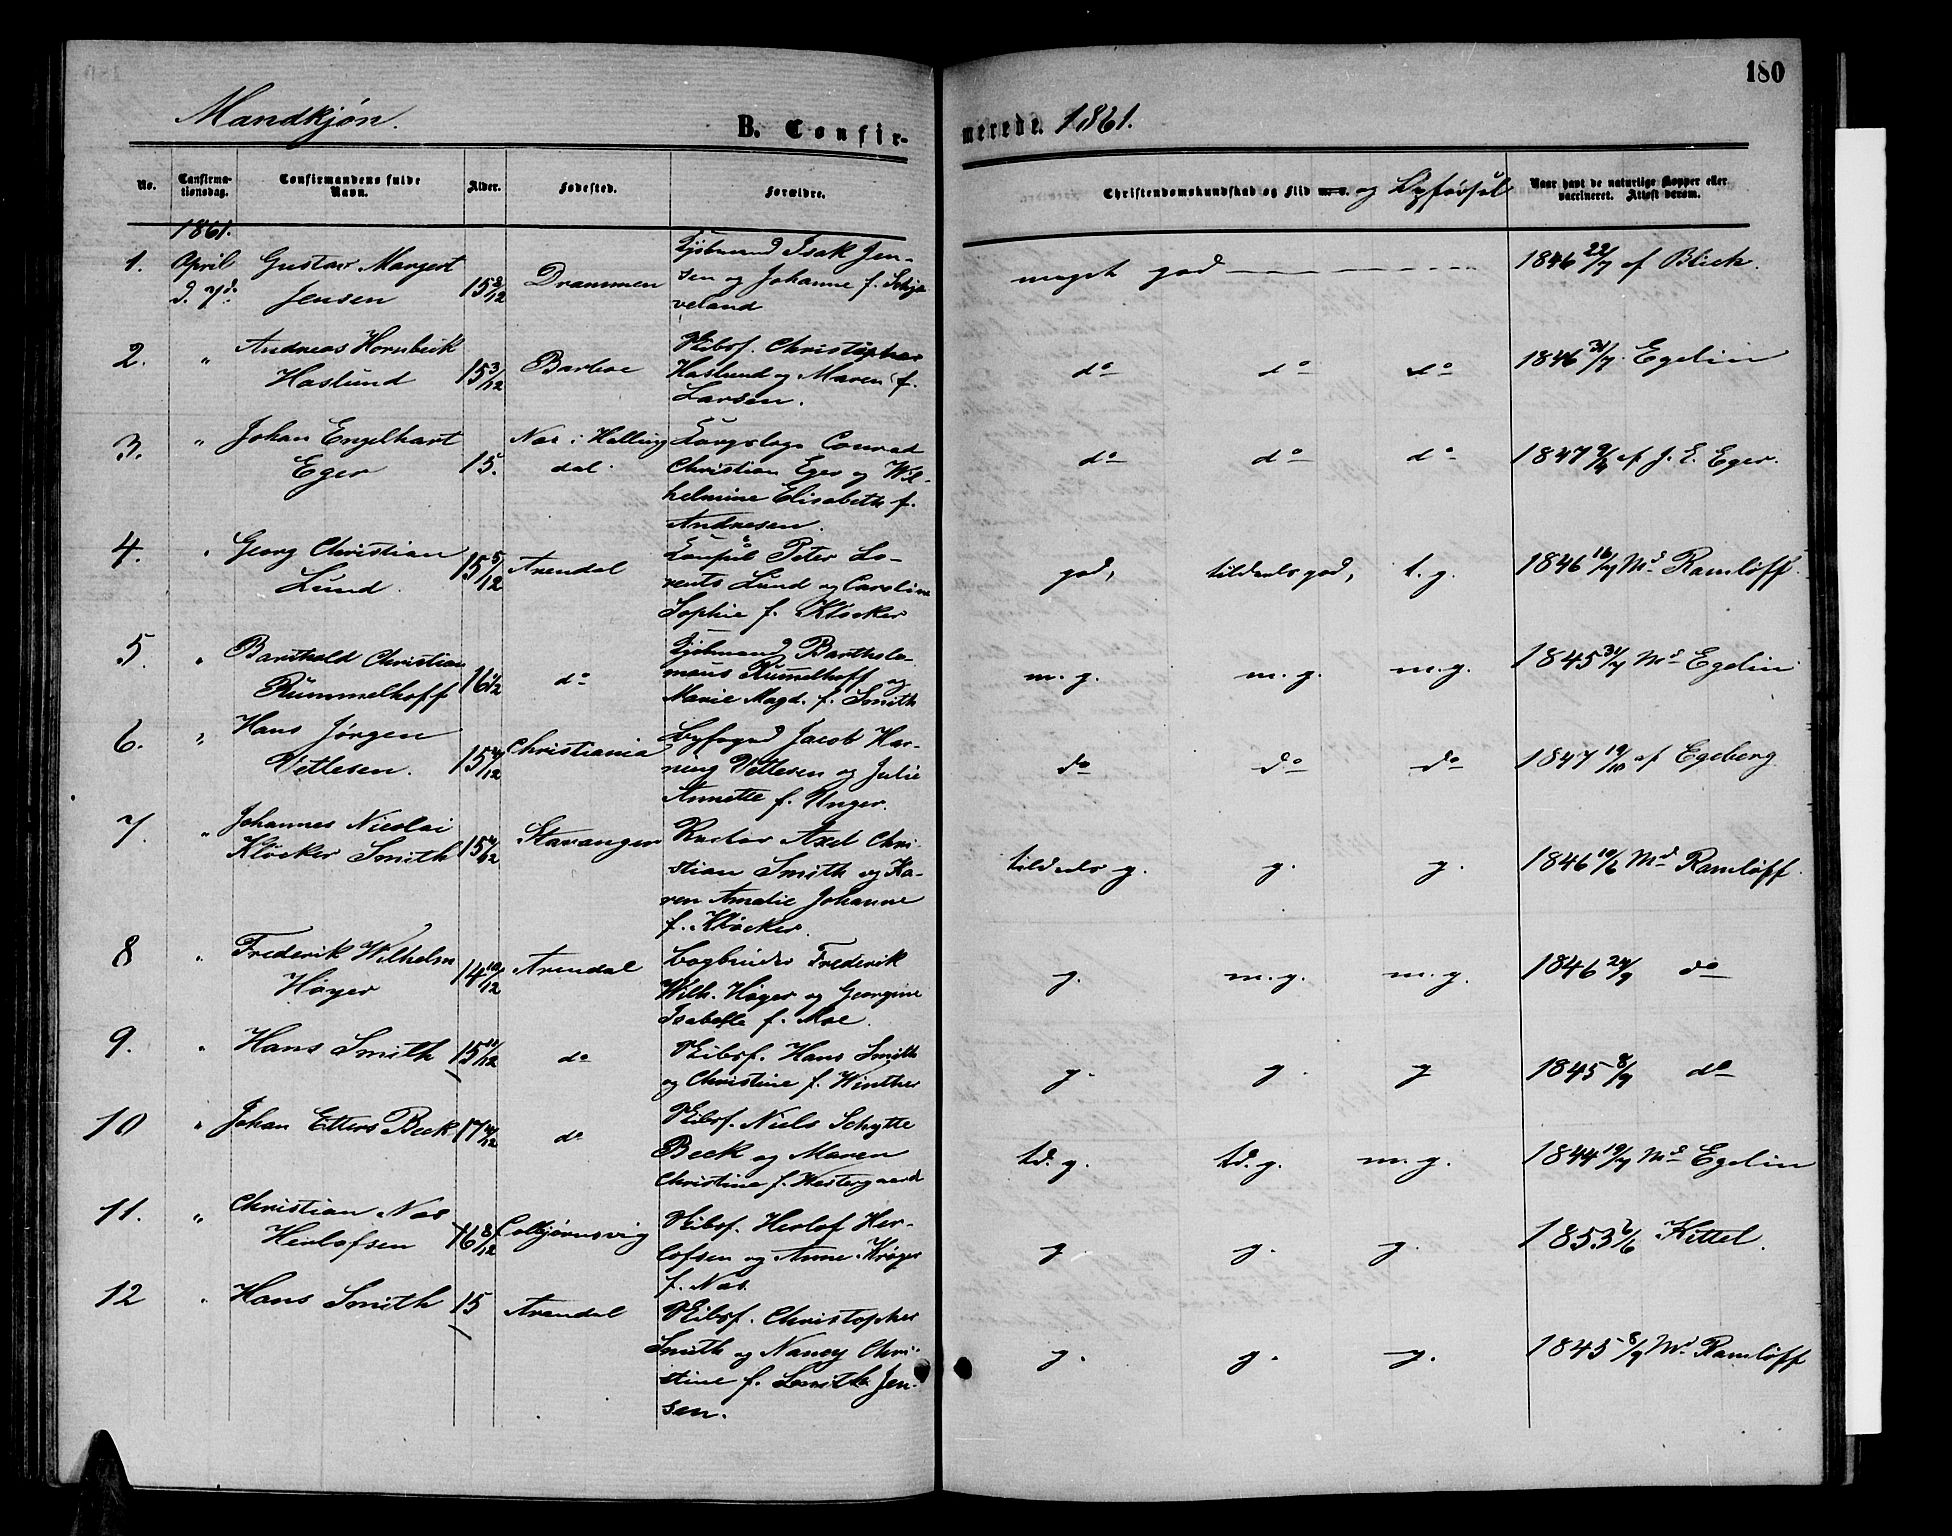 180
Mandkjøn.
B. Confir-
merede. 1861.
No.
Confirma-
tionsdag.
Confirmandens fulde
Navn.
Alder.
Fødested.
Forældre.
Christendomskundskab og Flid m. v. og Opførsel
Naar havt de naturlige Kopper eller
vaccineret. Attest derom.
1861.
1. April Gustav Margert
d. 7d. Jensen 15 2/12 Drammen
Kjøbmand Isak Jen-
sen og Johanne f. Schja
veland
meget god — — — 1846 22/7 af Blich.
2. " Andreas Hornbeck
Haslund 15 3/12 Barboe
Skibsf. Christopher
Haslund og Maren f.
Larsen.
do do do 1846 31/7 Egelin
3. " Johan Engelhart
Eger 15. Nes i Halling
dal.
Conrad
Christian Eger og Wil-
helmine Elisabeth f.
Andresen.
do do do 1847 9/4 af J. E. Eger.
4. " Georg Christian
Lund. 15 5/12 Arendal
Konsul Peter Lo-
rents Lund og Caroline
Sophie f. Kløcker
god, tildeels god, t. g. 1846 16/7 Md Ramløff.
5. " Barthold Christian
Rummelhoff 16 1/2 do
Kjøbmand Bartholo-
mæus Rummelhoff og
Marie Magd. f. Smith
m. g. m. g. m. g. 1845 31/7 Md Egelin
6. " Hans Jørgen
Vetlesen. 15 Christiania
Byfoged Jacob Har-
ning Vetlesen og Julie
Annette f. Unger.
do do do 1847 19/10 af Egeberg
7. " Johannes Nicolai
Kløcker Smith 15 Stavanger
Rector Axel Chri-
stian Smith og Ka-
ren Amalie Johanne
f. Kløcker.
tildeels g. g. g. 1846 10/6 Md Ramløff.
8 " Frederik Wilhelm
Høyer 14 10/12 Arendal
Bogbinder Frederik
Wilh. Høyer og Georgine
Isabelle f. Moe.
g. m. g. m. g. 1846 24/9 do
9. " Hans Smith 15 10/12 do
Skibsf. Hans Smith
og Christine f. Winther
g. g. g 1845 8/9 do
10 " Johan Etters Beck 17 do
Skibsf. Niels Schytte
Beck og Maren
Christine f. Westergaard
td. g. td. g. m. g. 1844 19/7 Md Egelin
11. " Christian Nes
Herlofsen 16 8/12 Colbjørnsvig
Skibsf. Herlof Her-
lofsen og Anne Krøger
f. Nes.
g g. g. 1853 2/6 Kittel.
12 " Hans Smith 15 Arendal
Skibsf. Christopher
Smith og Nancy Chri-
stine f. Smith Jen-
sen.
g. g. g. 1845 8/9 Md Ramløff